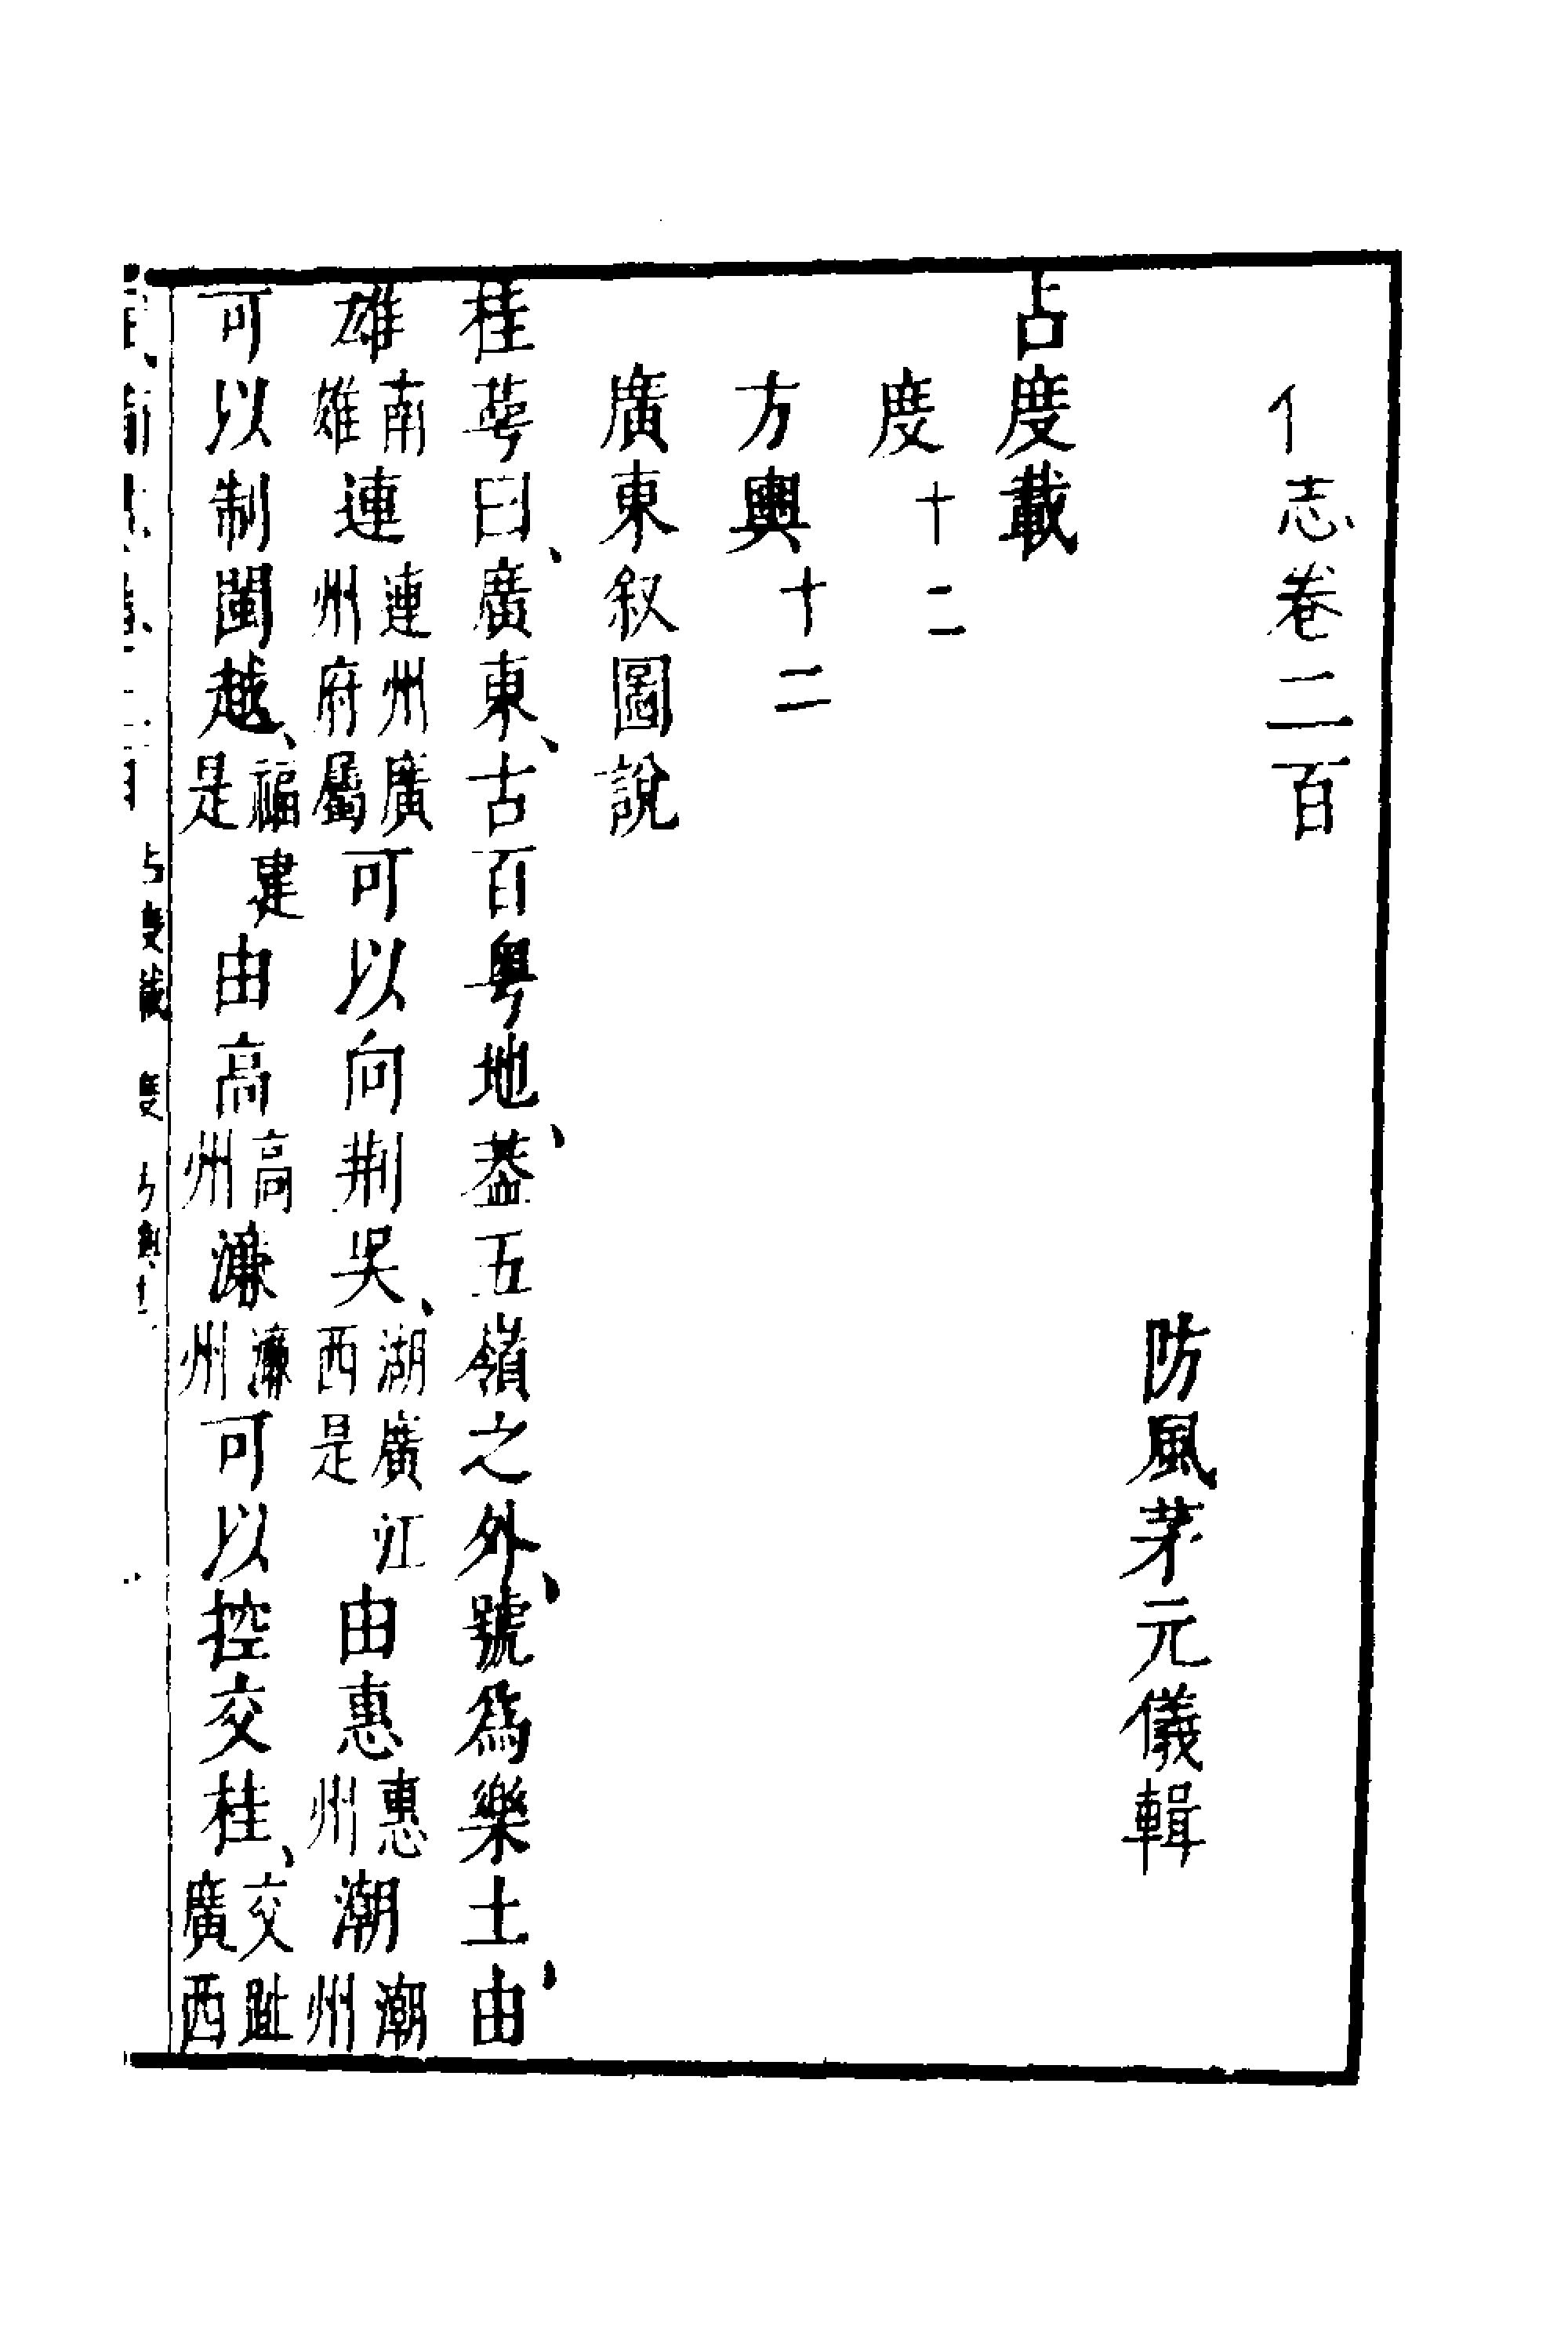 志卷二百
防風茅元儀輯
占度載
度十二
方輿十二
廣東叙圖說
桂萼曰、廣東、古百粤地、葢五嶺之外、號爲樂土、由
雄南雄連連州廣州府屬可以向荆吳、湖廣江西是由惠惠州潮潮州
可以制閩越、福建是由高高州㢘㢘州可以控交桂、交趾廣西
占度載 度 方輿十二